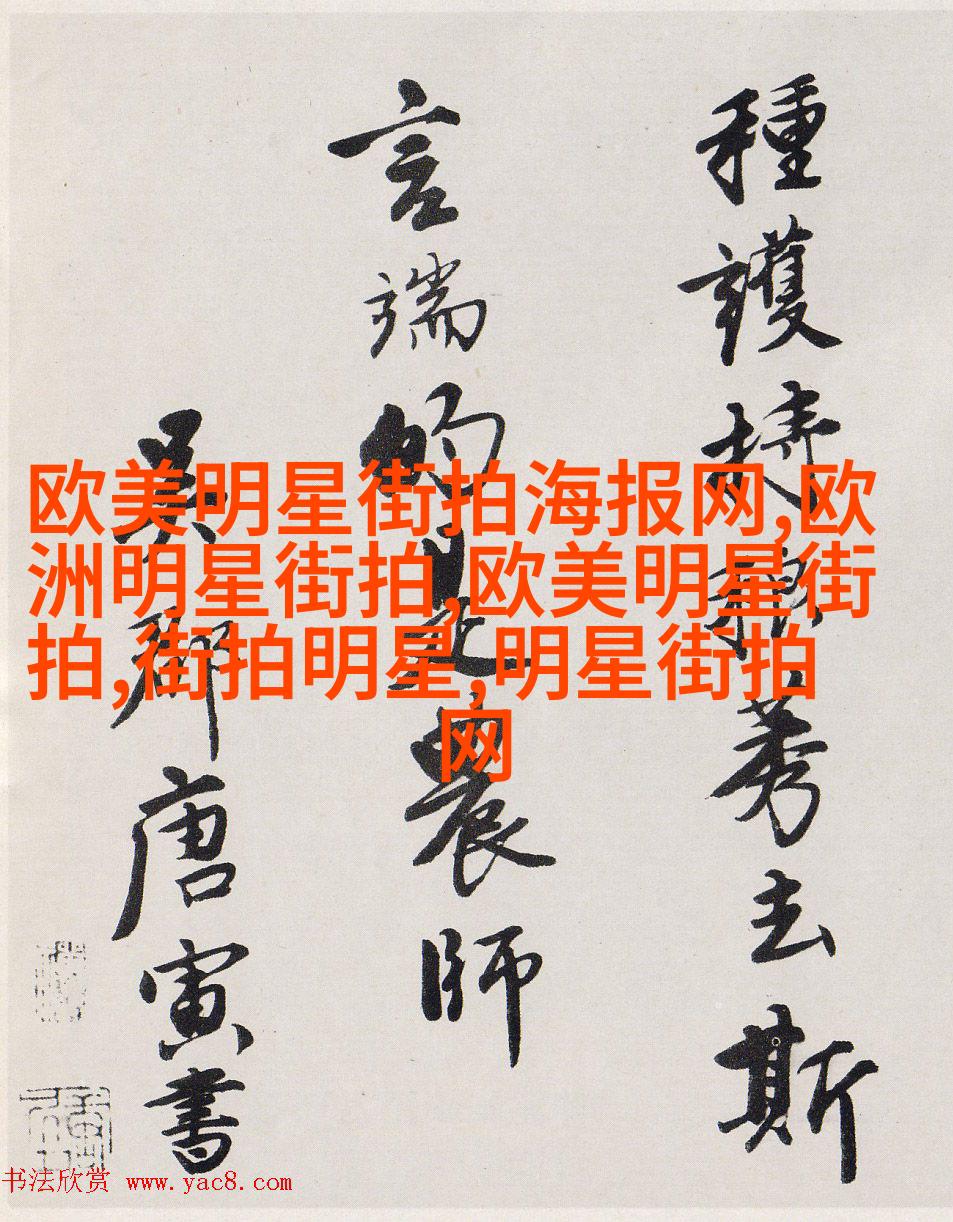 種護莠去斯
言端的是農師
吳郡唐寅書
欧美明星街拍海报网,欧
洲明星街拍,欧美明星街
拍,街拍明星,明星街拍
网
书法欣赏 www.yac8.com